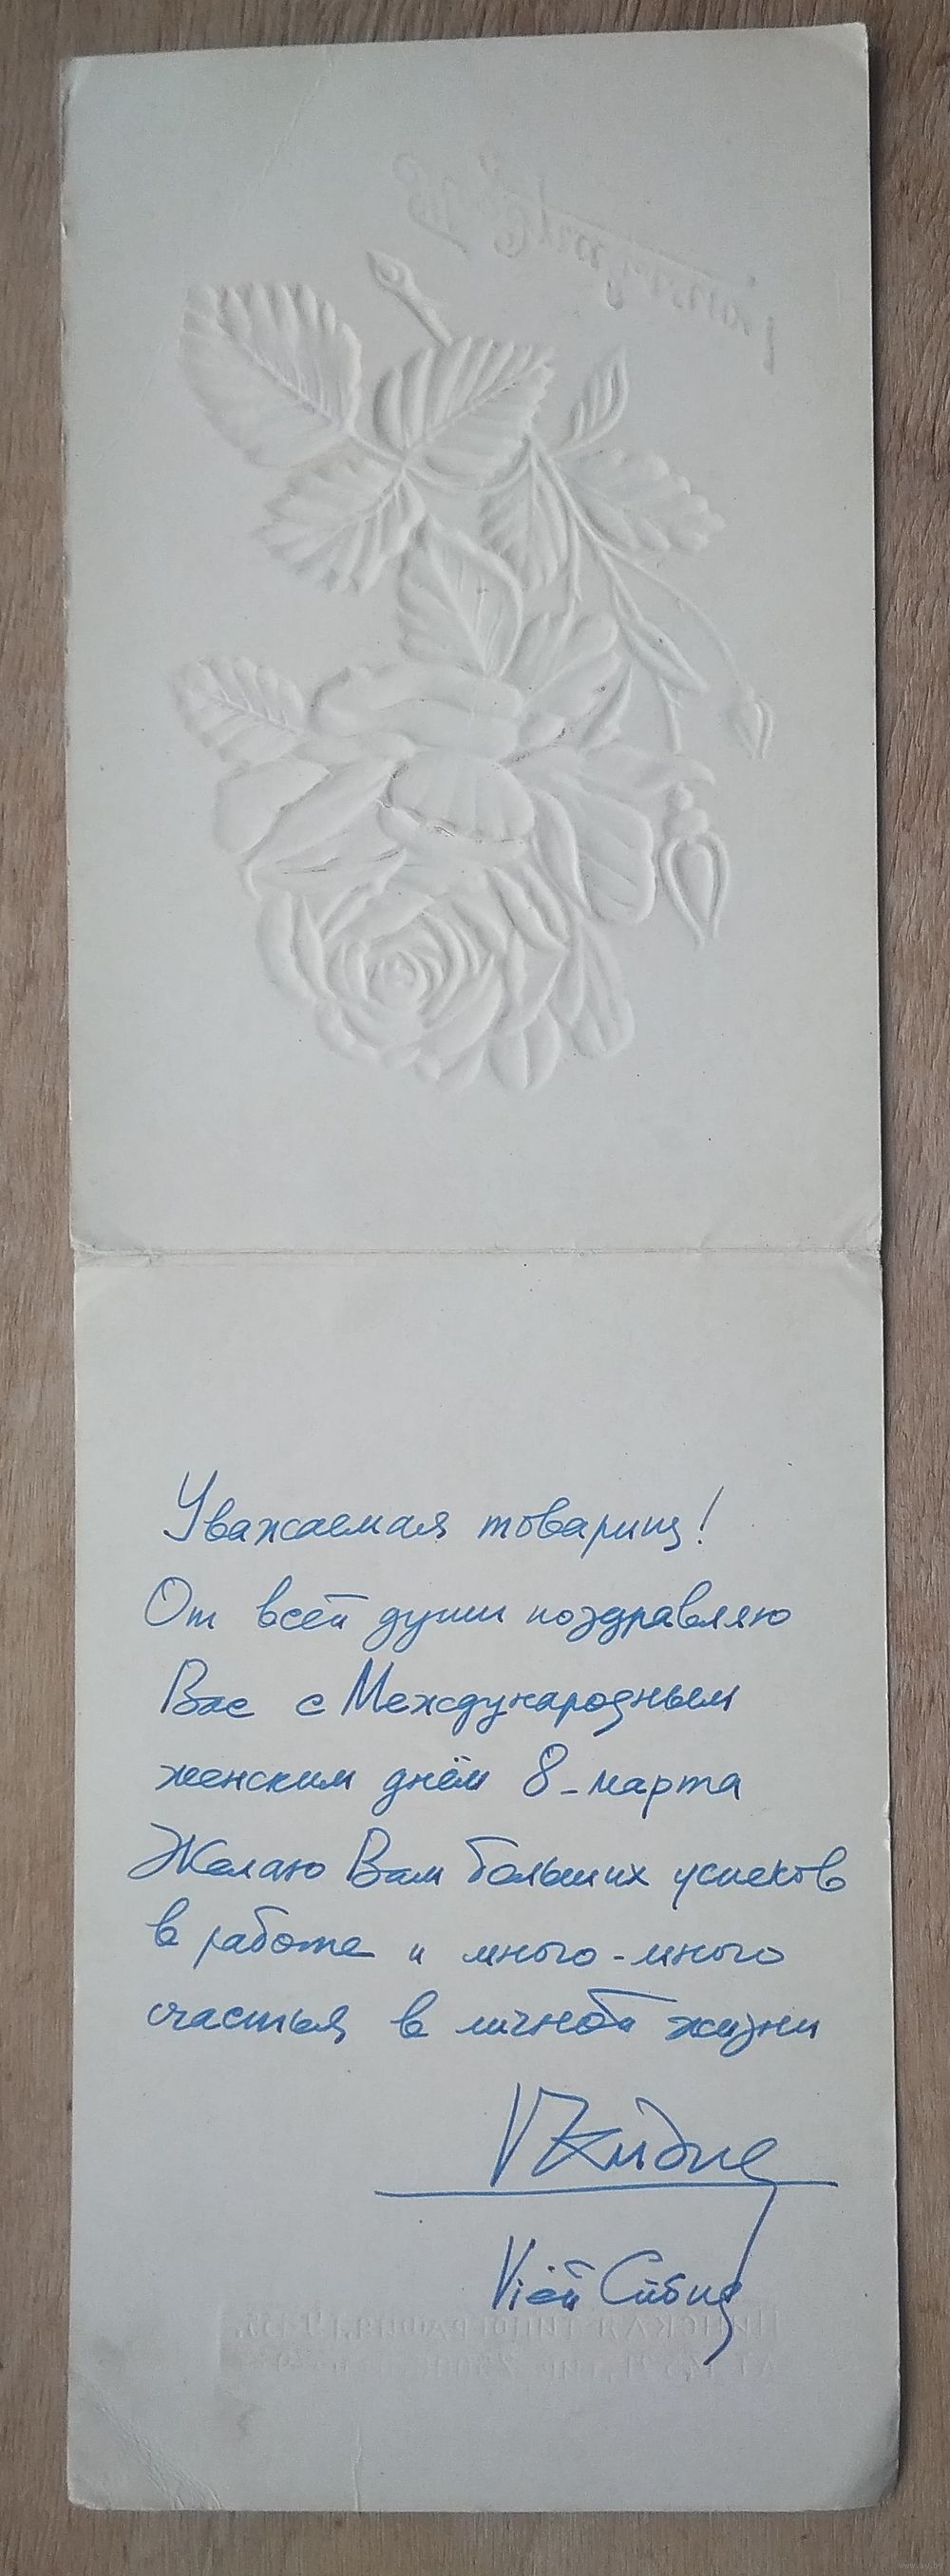 Уважаемая товарищ!
От всей души поздравляю
Вас с Международным
женским днём 8-марта
Желаю Вам больших успехов
в работе и много-много
счастья в личной жизни